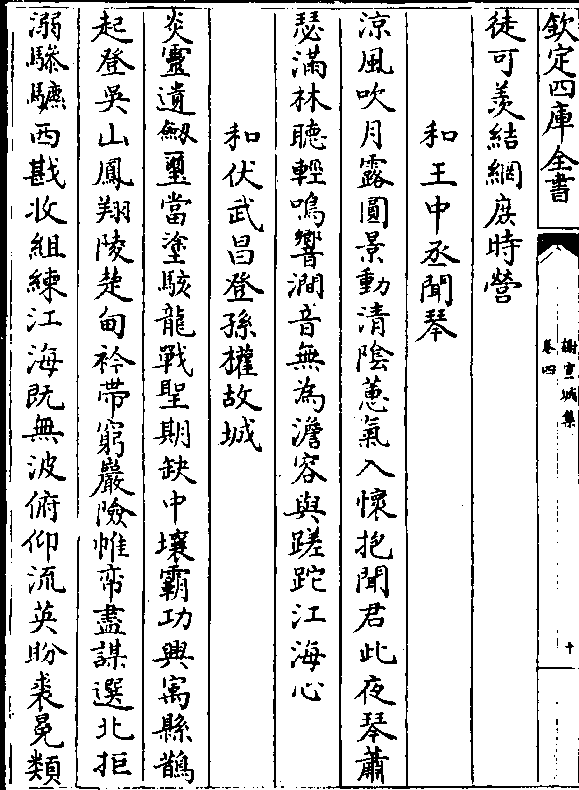 欽定四庫全書
謝宣城集
卷四
十
徒可羨結網庶時營
和王中丞聞琴
涼風吹月露圓景動清陰蕙氣入懷抱聞君此夜琴蕭
瑟滿林聽輕鳴響澗音無為澹容與蹉跎江海心
和伏武昌登孫權故城
炎靈遺劒璽當塗駭龍戰聖期缺中壤霸功興寓縣鵲
起登吳山鳳翔陵楚甸衿帶窮巖險帷帟盡謀選北拒
溺驂鑣西戡收組練江海既無波俯仰流英盼裘冕類